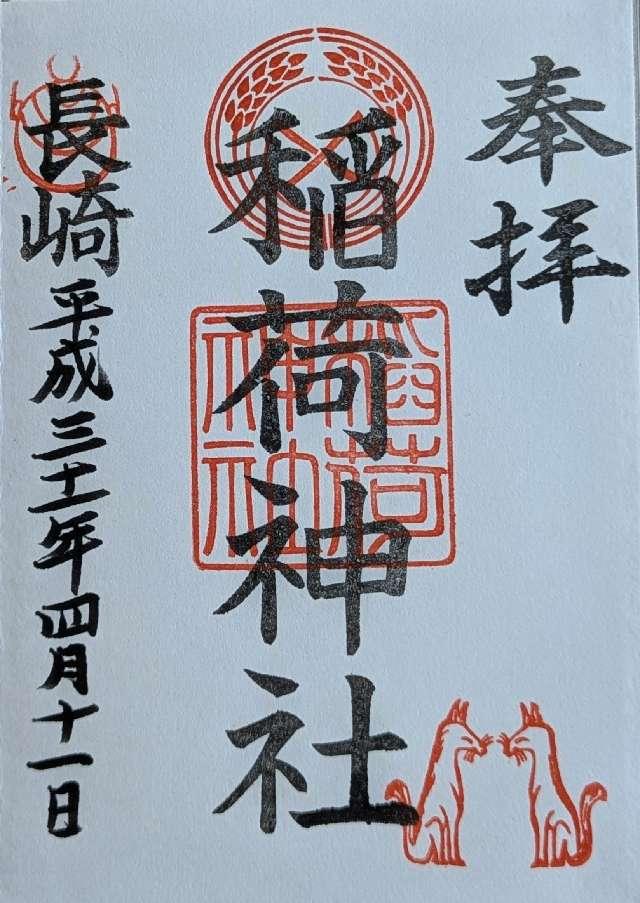 奉拝
稲荷神社
稲荷神社
長崎
平成三十一年四月十一日